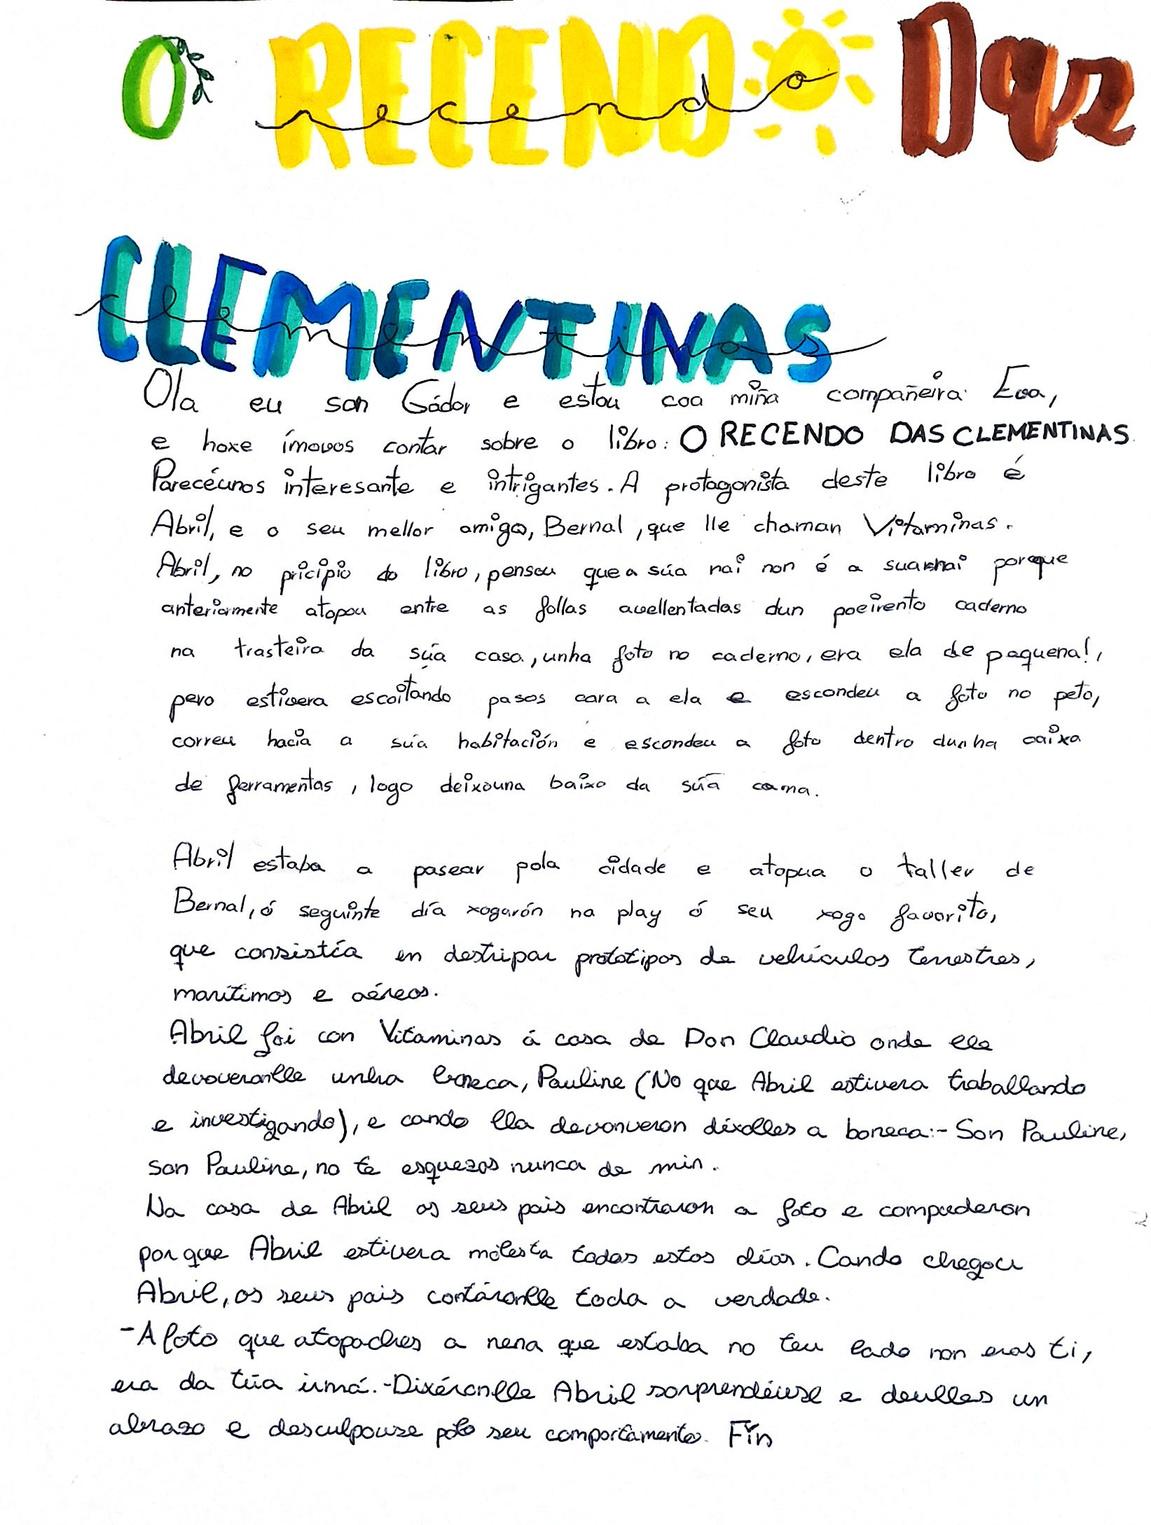 O RECENDO Das
recendo
CLEMENTINAS
clementinas
Ola eu son Gádor e estou coa miña compañeira: Eva,
e hoxe ímovos contar sobre o libro: O RECENDO DAS CLEMENTINAS.
Parecéunos interesante e intrigantes. A protagonista deste libro é
Abril, e o seu mellor amigo, Bernal, que lle chaman Vitaminas.
Abril, no pricipio do libro, pensou que a súa nai non é a sua nai porque
anteriormente atopou entre as follas avellentadas dun poeirento caderno
na trasteira da súa casa, unha foto no caderno, era ela de paquena!,
pero estivera escoitando pasos cara a ela e escondeu a foto no peto,
correu hacia a súa habitación e escondeu a foto dentro dunha caixa
de ferramentas, logo deixouna baixo da súa cama.
Abril estaba a pasear pola cidade e atopua o taller de
Bernal, ó seguinte día xogarón na play ó seu xogo favorito,
que consistía en destripar prototipos de vehículos terrestres,
marítimos e aéreos.
Abril foi con Vitaminas á casa de Don Claudio onde ele
devoveronlle unha boneca, Pauline (No que Abril estivera traballando
e investigando), e cando lla devonveron díxolles a boneca:- Son Pauline,
son Pauline, no te esquezas nunca de min.
Na casa de Abril os seus pais encontraron a foto e compuderon
por que Abril estivera molesta todos estos días. Cando chegou
Abril, os seus pais contáronlle toda a verdade.
-A foto que atopaches a nena que estaba no teu lado non eras ti,
era da túa irmá.-Dixéronlle Abril sorprendéuse e deulles un
abrazo e desculpouse polo seu comportamento. Fin